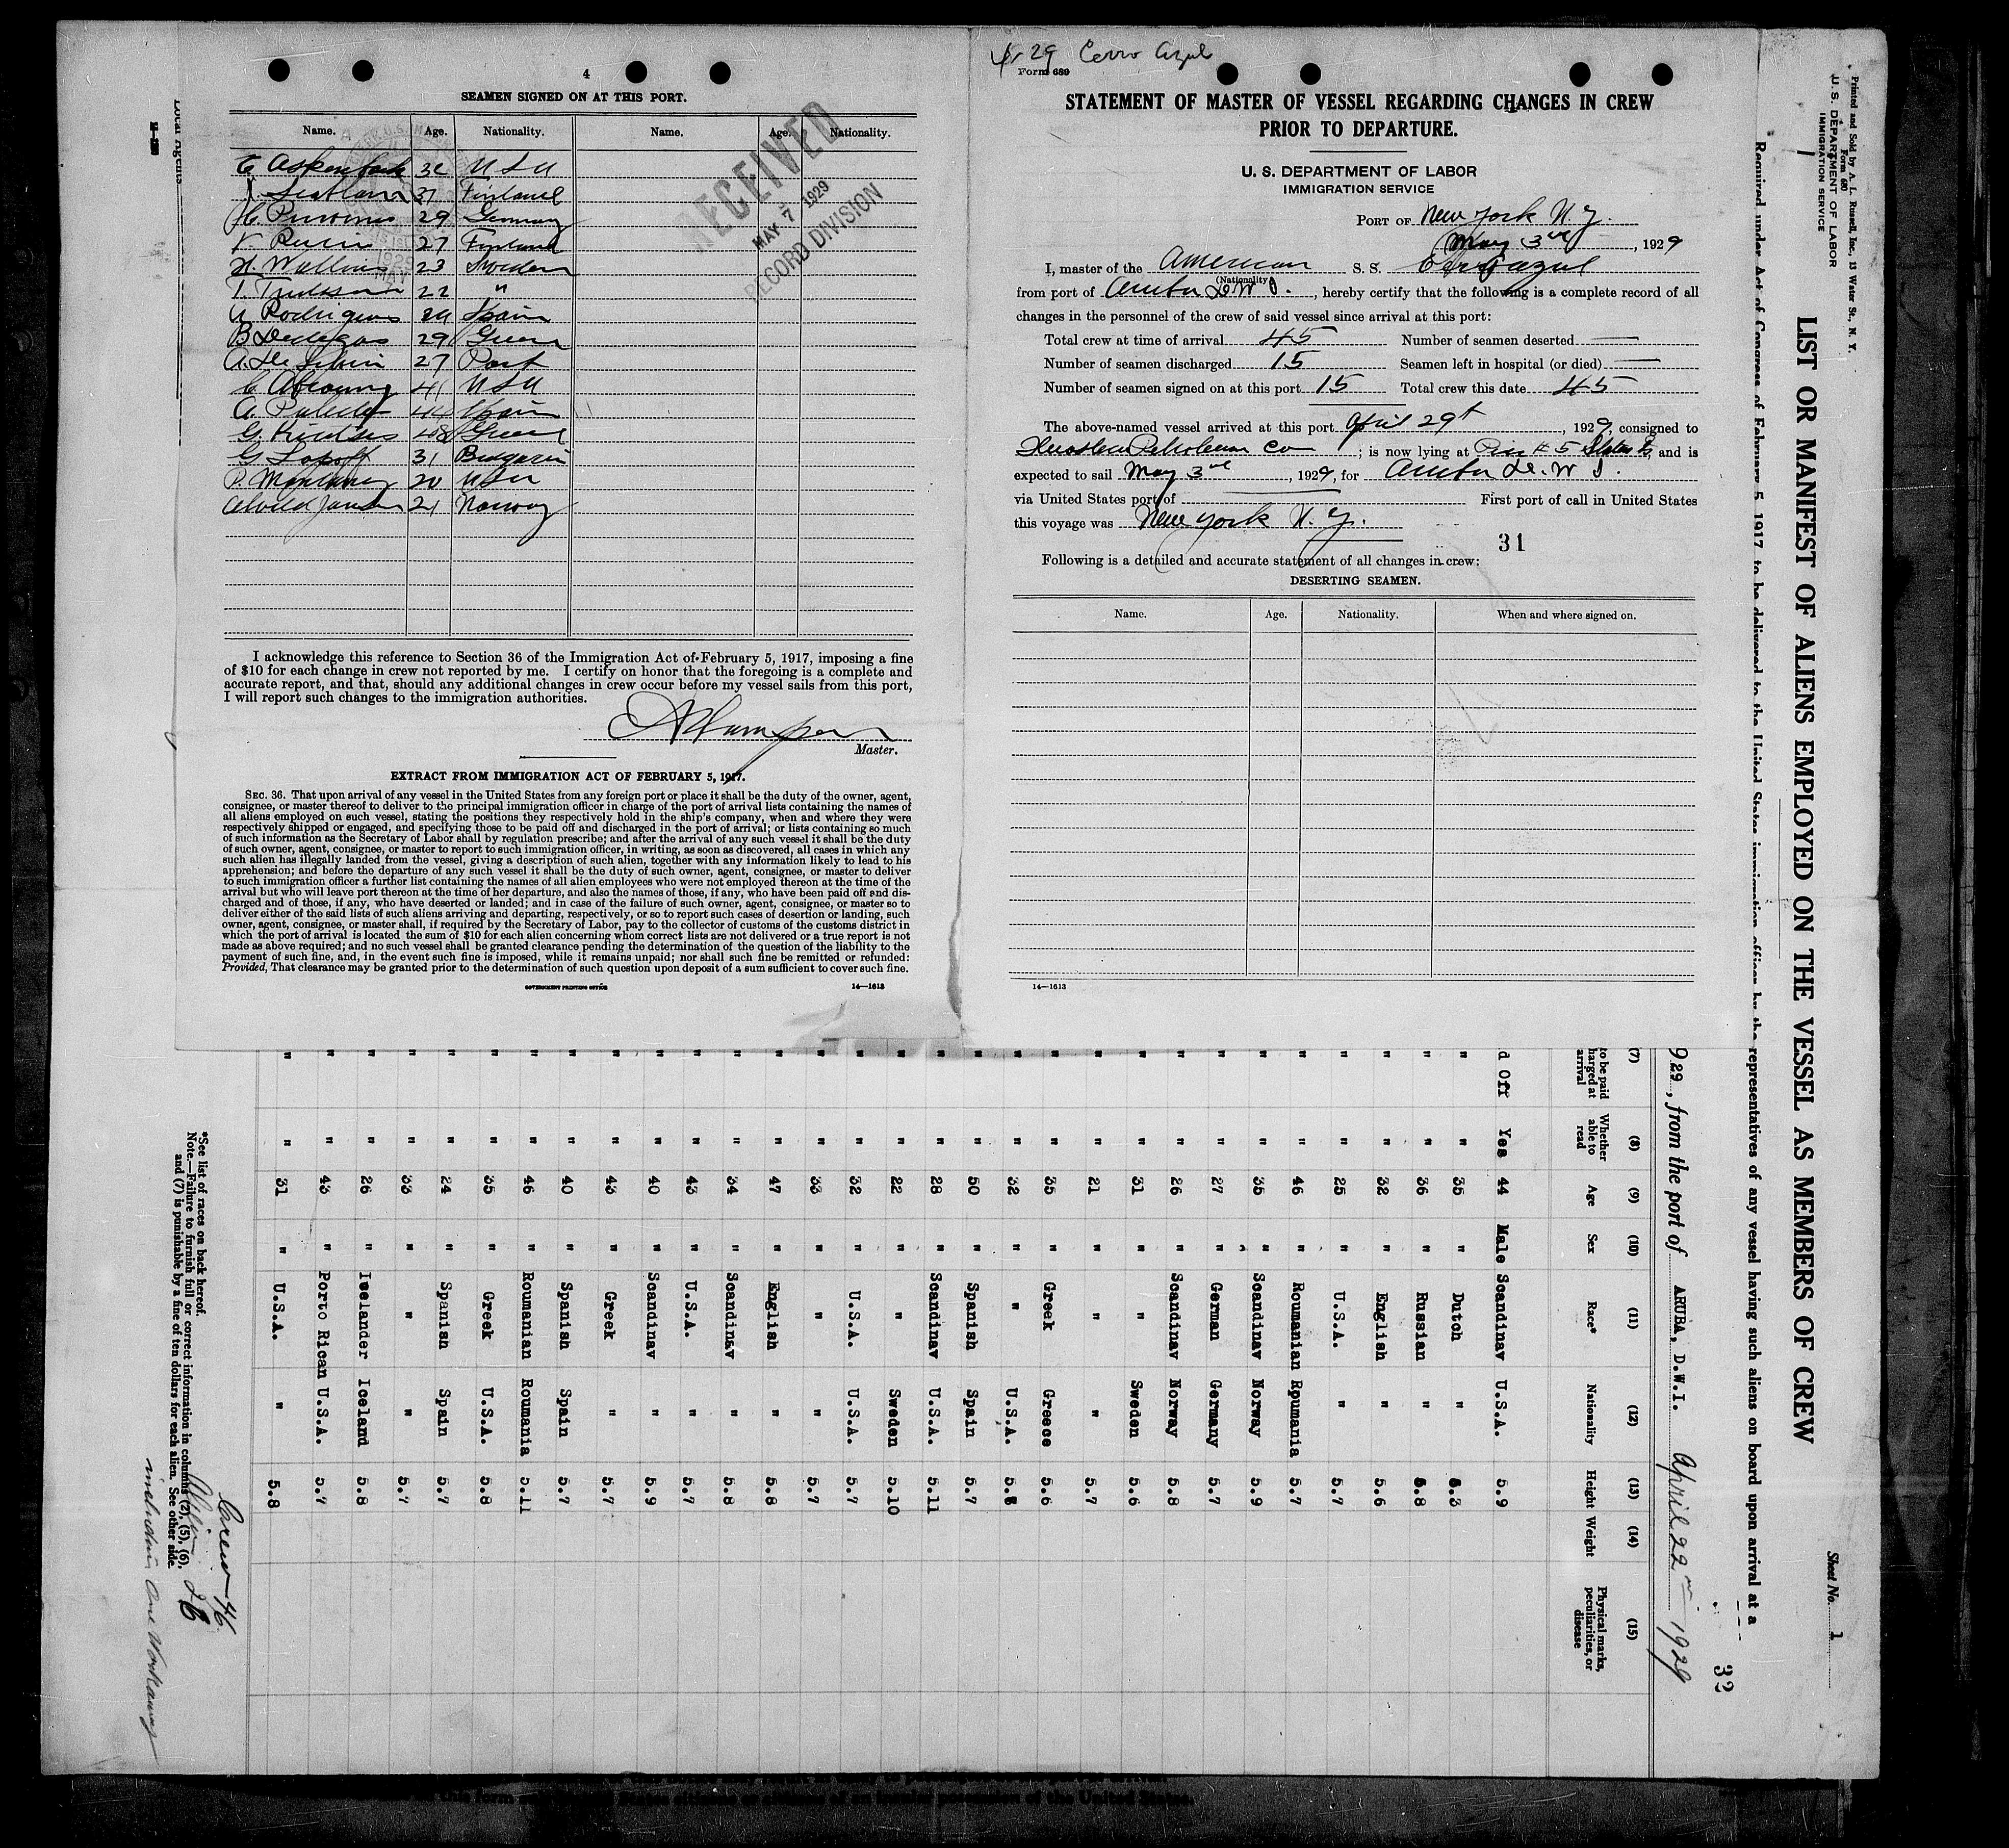 4
SEAMEN SIGNED ON AT THIS PORT.
Name. Age. Nationality. Name. Age. Nationality.
32 USA
37 Finland
29 Germany
27 Finland
H. 23 Sweden
T. 22 "
Rodrigues Spain
B 29
A. De 27 Port
C. 41 USA
A. 44 Spain
G.
G. Popoff 31 Bulgaria
P. 20 USA
21 Norway
RECEIVED
MAY 7 1929
RECORD DIVISION
I acknowledge this reference to Section 36 of the Immigration Act of February 5, 1917, imposing a fine
of $10 for each change in crew not reported by me. I certify on honor that the foregoing is a complete and
accurate report, and that, should any additional changes in crew occur before my vessel sails from this port,
I will report such changes to the immigration authorities.
Master.
EXTRACT FROM IMMIGRATION ACT OF FEBRUARY 5, 1917.
SEC. 36. That upon arrival of any vessel in the United States from any foreign port or place it shall be the duty of the owner, agent,
consignee, or master thereof to deliver to the principal immigration officer in charge of the port of arrival lists containing the names of
all aliens employed on such vessel, stating the positions they respectively hold in the ship's company, when and where they were
respectively shipped or engaged, and specifying those to be paid off and discharged in the port of arrival; or lists containing so much
of such information as the Secretary of Labor shall by regulation prescribe; and after the arrival of any such vessel it shall be the duty
of such owner, agent, consignee, or master to report to such immigration officer, in writing, as soon as discovered, all cases in which any
such alien has illegally landed from the vessel, giving a description of such alien, together with any information likely to lead to his
apprehension; and before the departure of any such vessel it shall be the duty of such owner, agent, consignee, or master to deliver
to such immigration officer a further list containing the names of all alien employees who were not employed thereon at the time of the
arrival but who will leave port thereon at the time of her departure, and also the names of those, if any, who have been paid off and dis-
charged and of those, if any, who have deserted or landed; and in case of the failure of such owner, agent, consignee, or master so to
deliver either of the said lists of such aliens arriving and departing, respectively, or so to report such cases of desertion or landing, such
owner, agent, consignee, or master shall, if required by the Secretary of Labor, pay to the collector of customs of the customs district in
which the port of arrival is located the sum of $10 for each alien concerning whom correct lists are not delivered or a true report is not
made as above required; and no such vessel shall be granted clearance pending the determination of the question of the liability to the
payment of such fine, and, in the event such fine is imposed, while it remains unpaid; nor shall such fine be remitted or refunded:
Provided, That clearance may be granted prior to the determination of such question upon deposit of a sum sufficient to cover such fine.
GOVERNMENT PRINTING OFFICE 14—1613
29 Cerro Azul
Form 689
STATEMENT OF MASTER OF VESSEL REGARDING CHANGES IN CREW
PRIOR TO DEPARTURE.
U. S. DEPARTMENT OF LABOR
IMMIGRATION SERVICE
PORT OF New York N. Y.
May 3rd, 1929
I, master of the American S. S. Cerro Azul
(Nationality)
from port of Aruba D.W.I., hereby certify that the following is a complete record of all
changes in the personnel of the crew of said vessel since arrival at this port:
Total crew at time of arrival 45 Number of seamen deserted —
Number of seamen discharged 15 Seamen left in hospital (or died) —
Number of seamen signed on at this port 15 Total crew this date 45
The above-named vessel arrived at this port April 29th, 1929, consigned to
Huasteca Petroleum Co; is now lying at Pier # 5 and is
expected to sail May 3rd, 1929, for Aruba D. W. I.
via United States port of — First port of call in United States
this voyage was New York N. Y.
31
Following is a detailed and accurate statement of all changes in crew:
DESERTING SEAMEN.
Name. Age. Nationality. When and where signed on.
14—1613
Printed and Sold by A. L. Russell, Inc., 13 Water St., N. Y.
Form 680
U.S. DEPARTMENT OF LABOR
IMMIGRATION SERVICE
Sheet No. 1
LIST OR MANIFEST OF ALIENS EMPLOYED ON THE VESSEL AS MEMBERS OF CREW
Required under Act of Congress of February 5, 1917, to be delivered to the United States immigration officer by the representatives of any vessel having such aliens on board upon arrival at a
32
929, from the port of ARUBA, D.W.I. April 22nd 1929
(7) (8) (9) (10) (11) (12) (13) (14) (15)
to be paid harged at arrival Whether able to read Age Sex Race* Nationality Height Weight Physical marks, peculiarities, or disease
d Off Yes 44 Male Scandinav U.S.A. 5.9
" " 35 " Dutch " 5.3
" " 36 " Russian " 5.8
" " 32 " English " 5.6
" " 25 " U.S.A. " 5.7
" " 46 " Roumanian Roumania 5.7
" " 35 " Scandinav Norway 5.9
" " 27 " German Germany 5.7
" " 26 " Scandinav Norway 5.8
" " 31 " " Sweden 5.6
" " 21 " " " 5.7
" " 35 " Greek Greece 5.6
" " 32 " " U.S.A. 5.8
" " 50 " Spanish Spain 5.7
" " 28 " Scandinav U.S.A. 5.11
" " 22 " " Sweden 5.10
" " 32 " U.S.A. U.S.A. 5.7
" " 33 " " " 5.7
" " 47 " English " 5.8
" " 34 " Scandinav " 5.8
" " 43 " U.S.A. " 5.7
" " 40 " Scandinav " 5.9
" " 43 " Greek " 5.7
" " 40 " Spanish Spain 5.7
" " 46 " Roumanian Roumania 5.11
" " 35 " Greek U.S.A. 5.8
" " 24 " Spanish Spain 5.7
" " 33 " " " 5.7
" " 26 " Icelander Iceland 5.8
" " 43 " Porto Rican U.S.A. 5.7
" " 31 " U.S.A. " 5.8
*See list of races on back hereof.
Note.—Failure to furnish full or correct information in columns (2), (5), (6),
and (7) is punishable by a fine of ten dollars for each alien. See other side.
Crew 46
Alien 26
including One Workaway
Local Agents